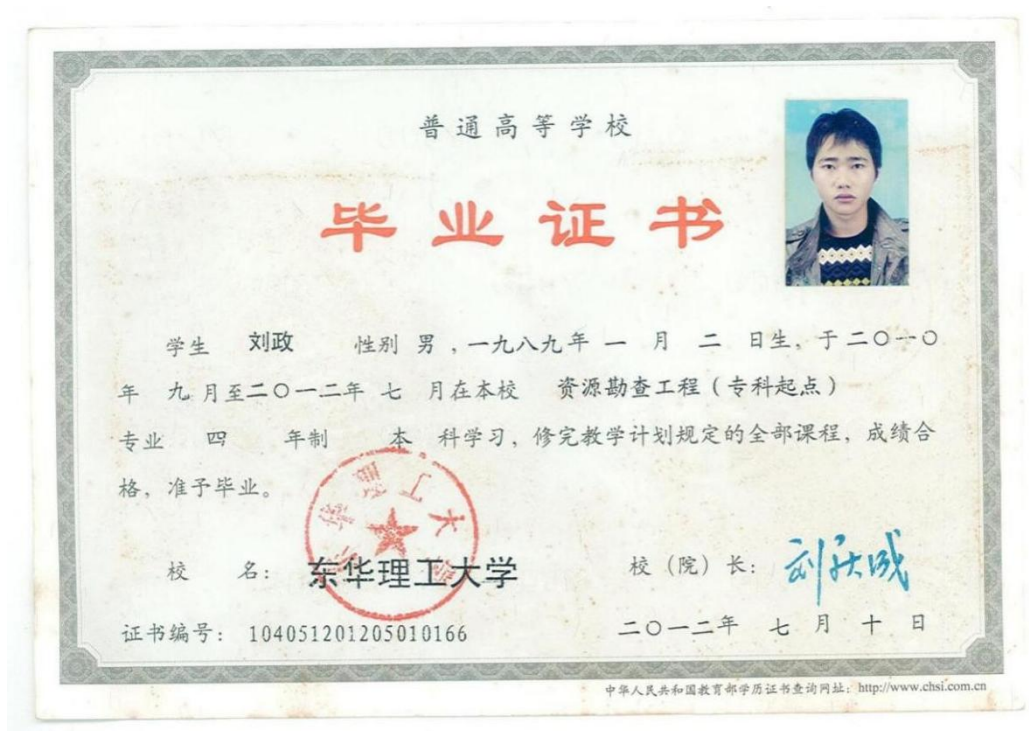 普通高等学校
毕业证书
学生 刘政 性别 男，一九八九年 一 月 二 日生，于二〇一〇
年 九 月至二〇一二年 七 月在本校 资源勘查工程（专科起点）
专业 四 年制 本 科学习，修完教学计划规定的全部课程，成绩合
格，准予毕业。
校 名： 东华理工大学
校（院）长：
证书编号： 104051201205010166
二〇一二年 七 月 十 日
中华人民共和国教育部学历证书查询网址：http://www.chsi.com.cn